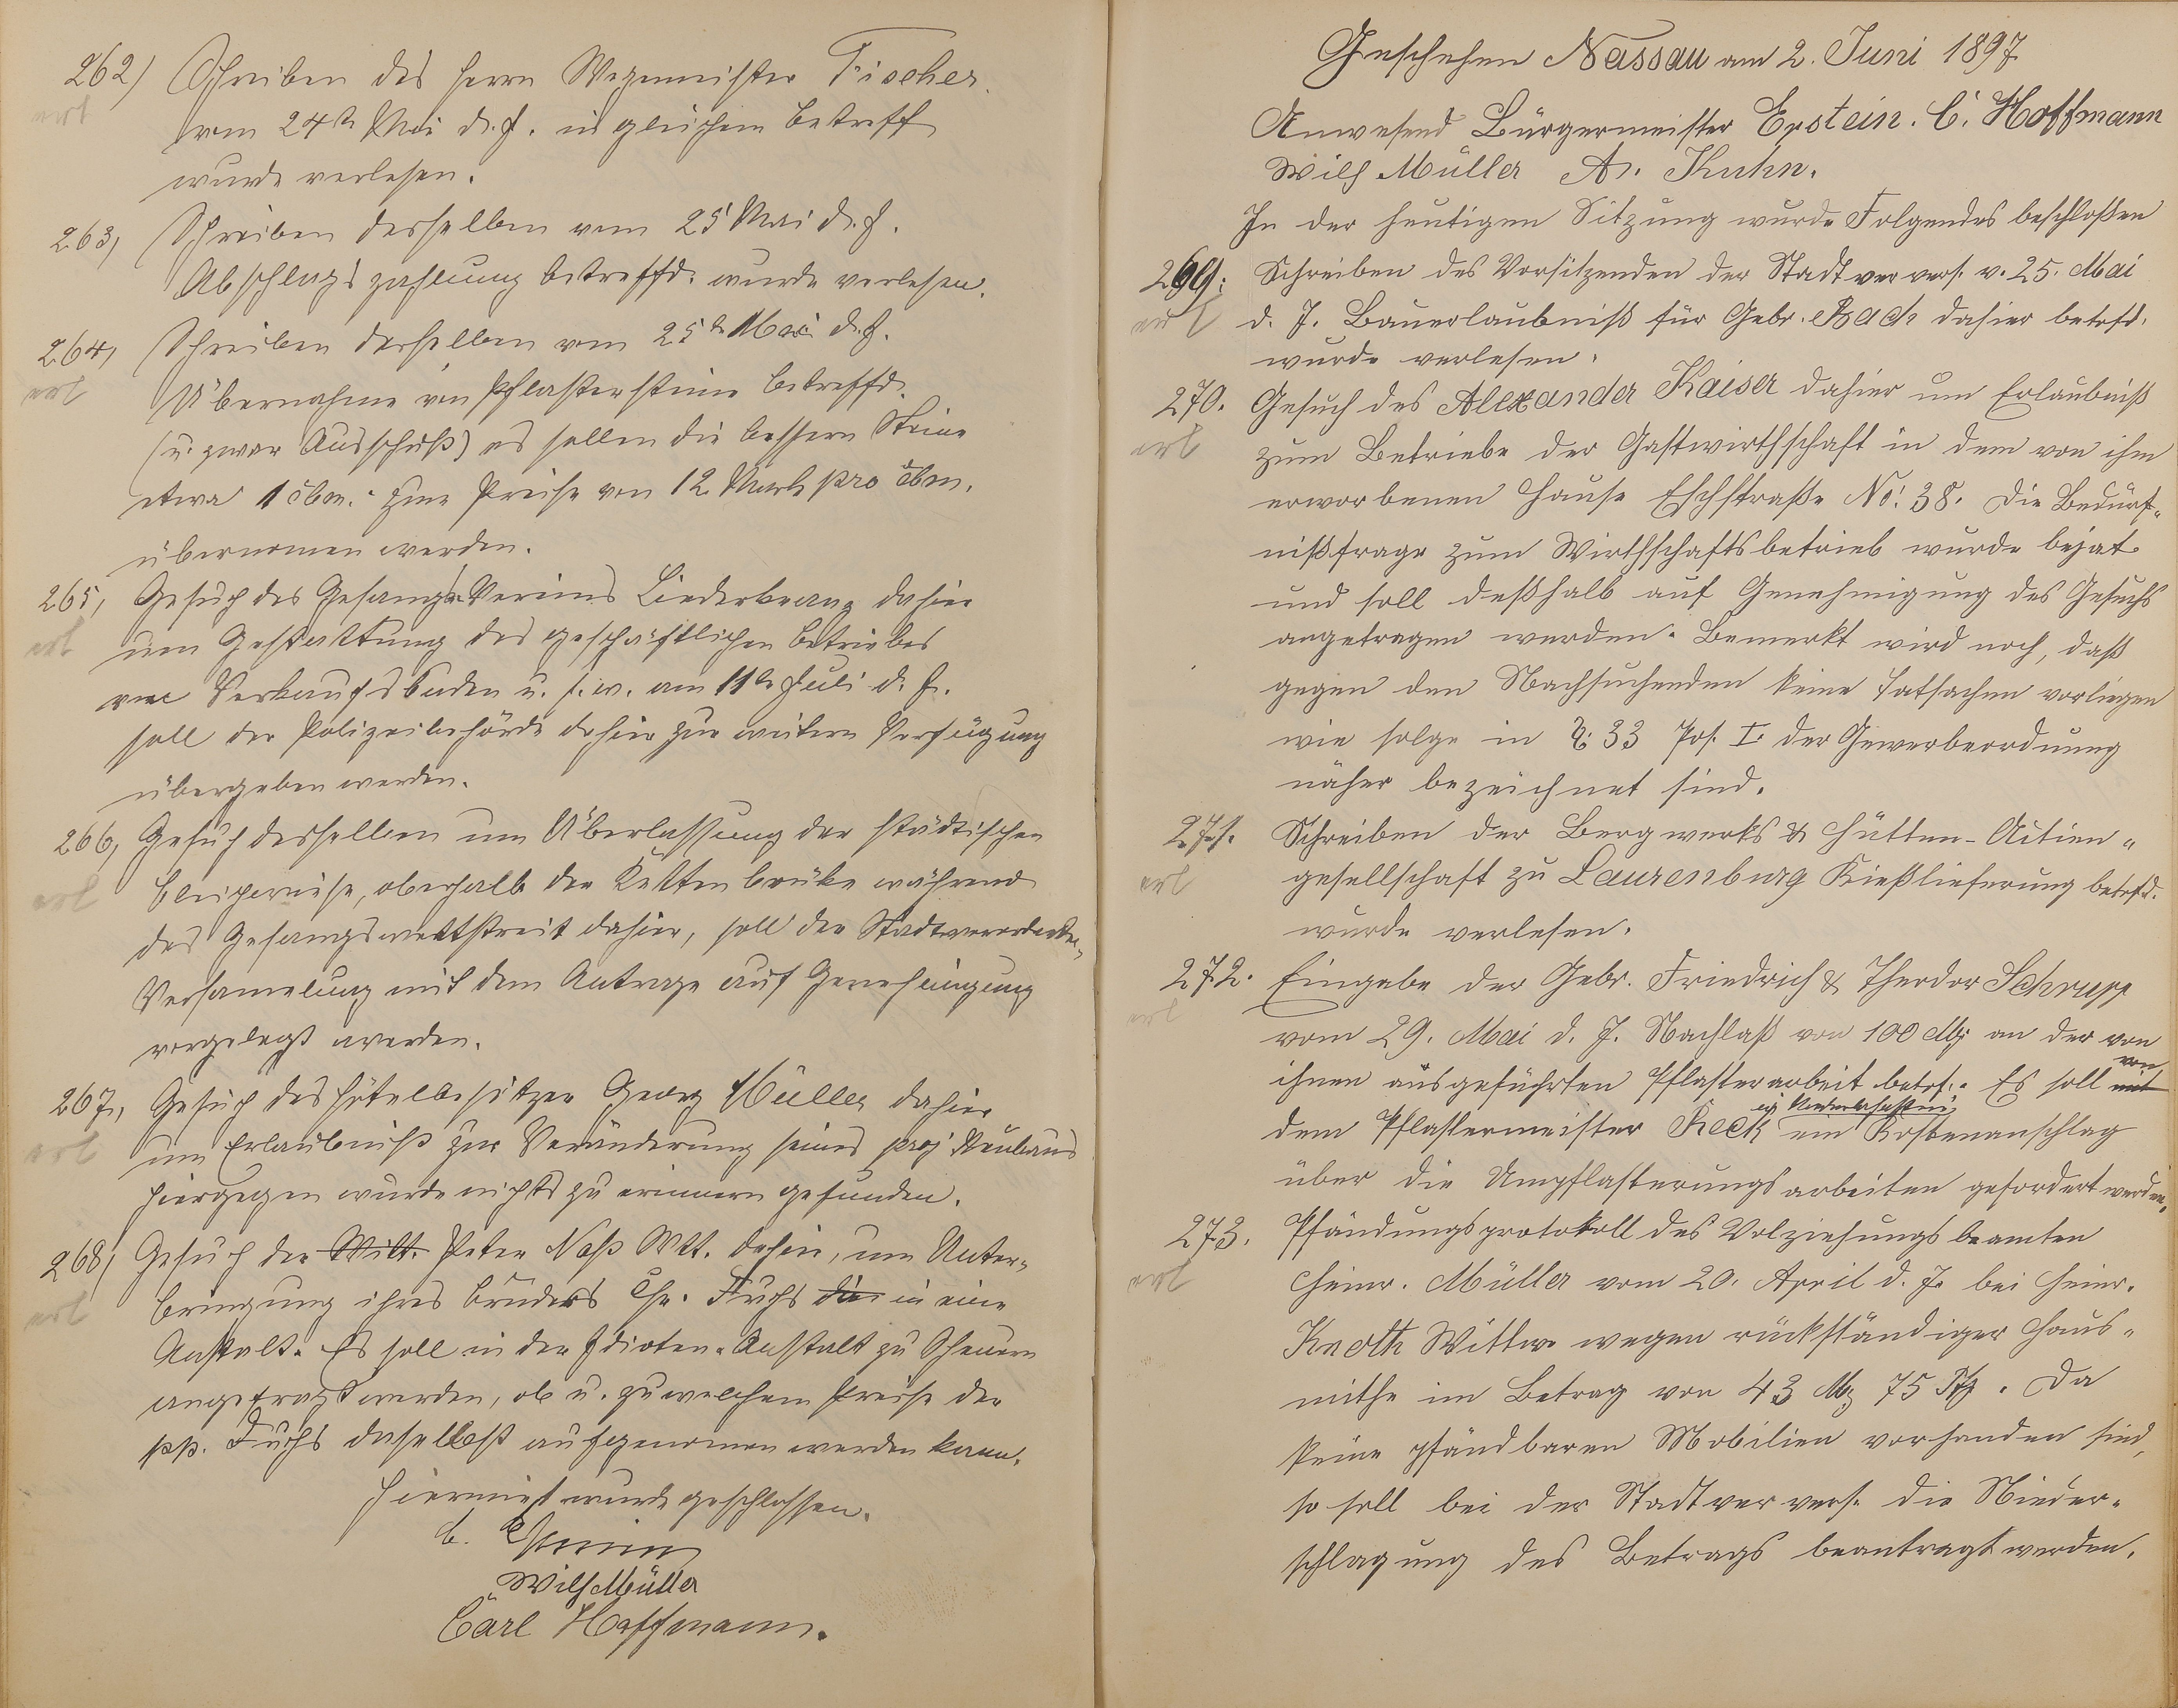 262) Schreiben des Herrn Wegemeister Fischer
erl
vom 24ten Mai d. J. in gleichem Betreff
wurde verlesen.
263, Schreiben desselben vom 25 Mai d. J.
Abschlagszahlung betreffd. wurde verlesen.
264, Schreiben desselben vom 25ten Mai d. J.
erl
Übernahme von Pflastersteine betreffd.
(u. zwar Ausschuß) es sollen die bessern Steine
etwa 1 cbm. zum Preise von 12 Mark pro cbm.
übernomen werden.
265, Gesuch des Gesang-Vereins Liederkranz dahier
erl
um Gestattung des geschäftlichen Betriebes
von Verkaufsbuden u. s. w. am 11ten Juli d. J.
soll der Polizeibehörde dahier zur weitern Verfügung
übergeben werden.
266, Gesuch desselben um Überlassung der städtischen
erl
Bleichwiese, oberhalb der Kettenbrücke während
des Gesangswettstreit dahier, soll der Stadtverordneten-
Versamelung mit dem Antrage auf Genehmigung
vorgelegt werden.
267, Gesuch des Hôtelbesitzer Georg Müller dahier
erl
um Erlaubniß zur Veränderung seines proj. Neubaus
hiergegen wurde nichts zu erinnern gefunden.
268, Gesuch der Witt. Peter Naß Wtt. dahier, um Unter-
erl
bringung ihres Bruders Chr. Fuchs die in eine
Anstalt. Es soll in der Idioten-Anstalt zu Scheuern
angefragt werden, ob u. zu welchem Preise der
pp. Fuchs daselbst aufgenomen werden kann.
Hiermit wurde geschlossen.
Wilh Müller
Carl Hoffmann.
Geschehen Nassau am 2. Juni 1897
Anwesend Bürgermeister Erstein. C. Hoffmann
Wilh Müller A. Kuhn.
In der heutigen Sitzung wurde Folgendes beschloßen
269. Schreiben des Vorsitzenden der Stadtververs. v. 25. Mai
erl
d. J. Bauerlaubniß für Gebr. Bach dahier betrfd.
wurde verlesen.
270. Gesuch des Alexander Kaiser dahier um Erlaubniß
erl
zum Betriebe der Gastwirthschaft in dem von ihm
erworbenen Hause Eschstraße No. 38. Die Bedürf-
nißfrage zum Wirthschaftsbetrieb wurde bejat
und soll deßhalb auf Genehmigung des Gesuchs
angetragen werden. Bemerkt wird noch, daß
gegen den Nachsuchenden keine Tatsachen vorliegen
wie solge in § 33 Pos. I. der Gewerbeordnung
näher bezeichnet sind.
271. Schreiben der Bergwerks & Hütten-Actien-
erl
gesellschaft zu Laurenburg Kießlieferung betrfd.
wurde verlesen.
272. Eingabe der Gebr. Friedrich & Theodor Schrupp
erl
vom 29. Mai d. J. Nachlaß von 100 Mk an der von
ihnen ausgeführten Pflasterarbeit betrf. Es soll mit von
dem Pflastermeister Reck ein Kostenanschlag
über die Umpflasterungsarbeiten gefordert werden.
273. Pfändungsprotokoll des Volziehungsbeamten
erl
Heinr. Müller vom 20. April d. J. bei Heinr.
Knoth Wittwe wegen rückständiger Haus-
mithe im Betrag von 43 Mk 75 Pfg. Da
keine pfändbaren Mobilien vorhanden sind,
so soll bei der Stadtververs. die Nieder-
schlagung des Betrags beantragt werden.